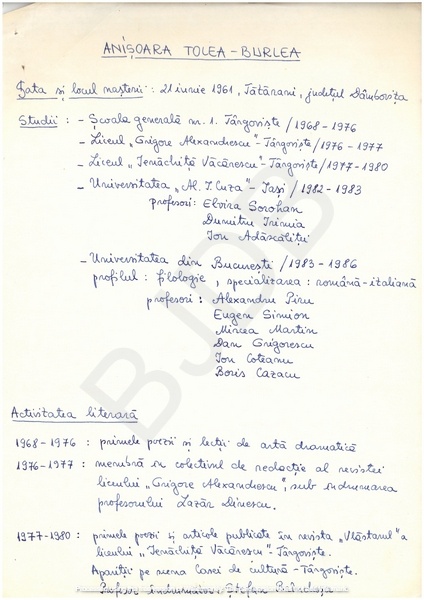 ANIȘOARA TOLEA-BURLEA
Data și locul nașterii: 21 iunie 1961, Tătărani, județul Dâmbovița
Studii: - Școala generală nr. 1. Târgoviște / 1968-1976
- Liceul „Grigore Alexandrescu" - Târgoviște / 1976-1977
- Liceul „Ienăchiță Văcărescu" - Târgoviște / 1977-1980
- Universitatea „Al. I. Cuza" - Iași / 1982-1983
profesori: Elvira Sorohan
Dumitru Irimia
Ion Adăscăliței
- Universitatea din București / 1983-1986
profilul: filologie, specializarea: română-italiană
profesori: Alexandru Piru
Eugen Simion
Mircea Martin
Dan Grigorescu
Ion Coteanu
Boris Cazacu
Activitatea literară
1968-1976: primele poezii și lecții de artă dramatică
1976-1977: membră în colectivul de redacție al revistei
liceului „Grigore Alexandrescu", sub îndrumarea
profesorului Lazăr Dinescu.
1977-1980: primele poezii și articole publicate în revista „Vlăstarul" a
liceului „Ienăchiță Văcărescu" - Târgoviște.
Apariții pe scena Casei de cultură - Târgoviște.
Profesor îndrumător: Ștefan
BJDB